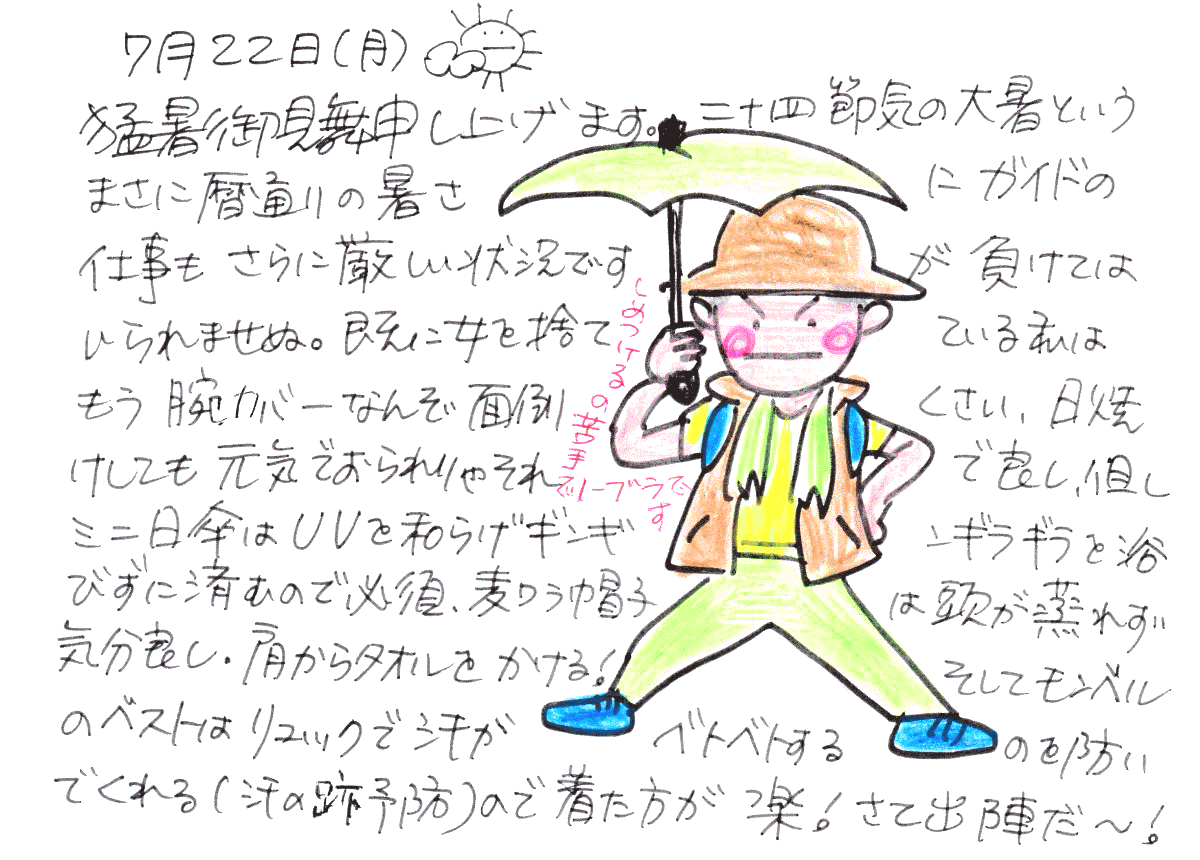 7月22日(月)
猛暑御見舞申し上げます。二十四節気の大暑という
まさに暦通りの暑さにガイドの
仕事もさらに厳しい状況ですが負けては
いられませぬ。既に女を捨てている私は
もう腕カバーなんぞ面倒くさい、日焼
けしても元気でおられりゃそれで良し、但し
ミニ日傘はUVを和らげギンギンギラギラを浴
びずに済むので必須、麦わら帽子は頭が蒸れず
気分良し・肩からタオルをかける!そしてモンベル
のベストはリュックで汗がベトベトするのを防い
でくれる(汗の跡予防)ので着た方が楽!さて出陣だ〜!
しめつけるの苦手
でノーブラで
す